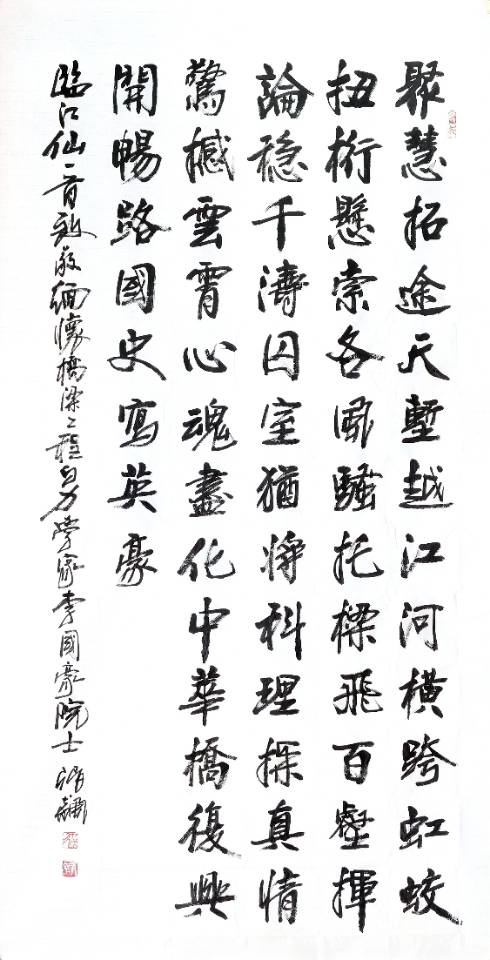 聚慧拓途天塹越江河橫跨虹蛟
扭桁懸索各風騷托樑飛百壑揮
論稳千濤囚室猶將科理探真情
驚撼雲霄心魂盡化中華橋復興
開暢路國史寫英豪
臨江仙一首致敬緬懷橋梁工程力學家李國豪院士